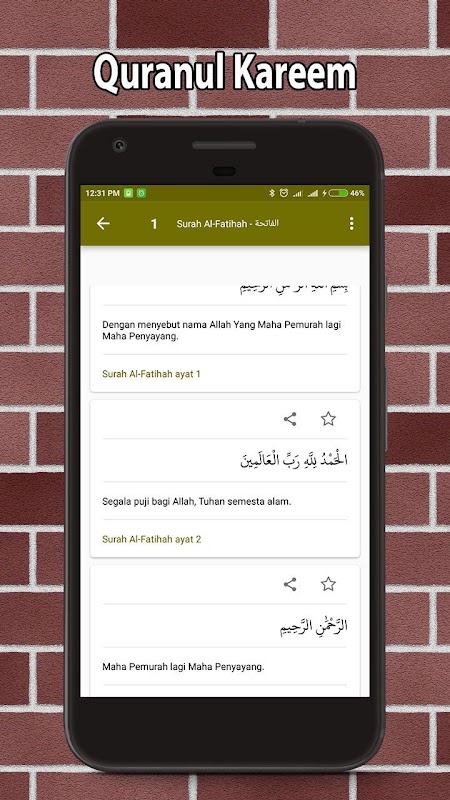 Quranul Kareem
12:31 PM
46%
1 Surah Al-Fatihah - الفاتحة
بِسْمِ اللَّهِ الرَّحْمَٰنِ الرَّحِيمِ
Dengan menyebut nama Allah Yang Maha Pemurah lagi
Maha Penyayang.
Surah Al-Fatihah ayat 1
الْحَمْدُ لِلَّهِ رَبِّ الْعَالَمِينَ
Segala puji bagi Allah, Tuhan semesta alam.
Surah Al-Fatihah ayat 2
الرَّحْمَٰنِ الرَّحِيمِ
Maha Pemurah lagi Maha Penyayang.